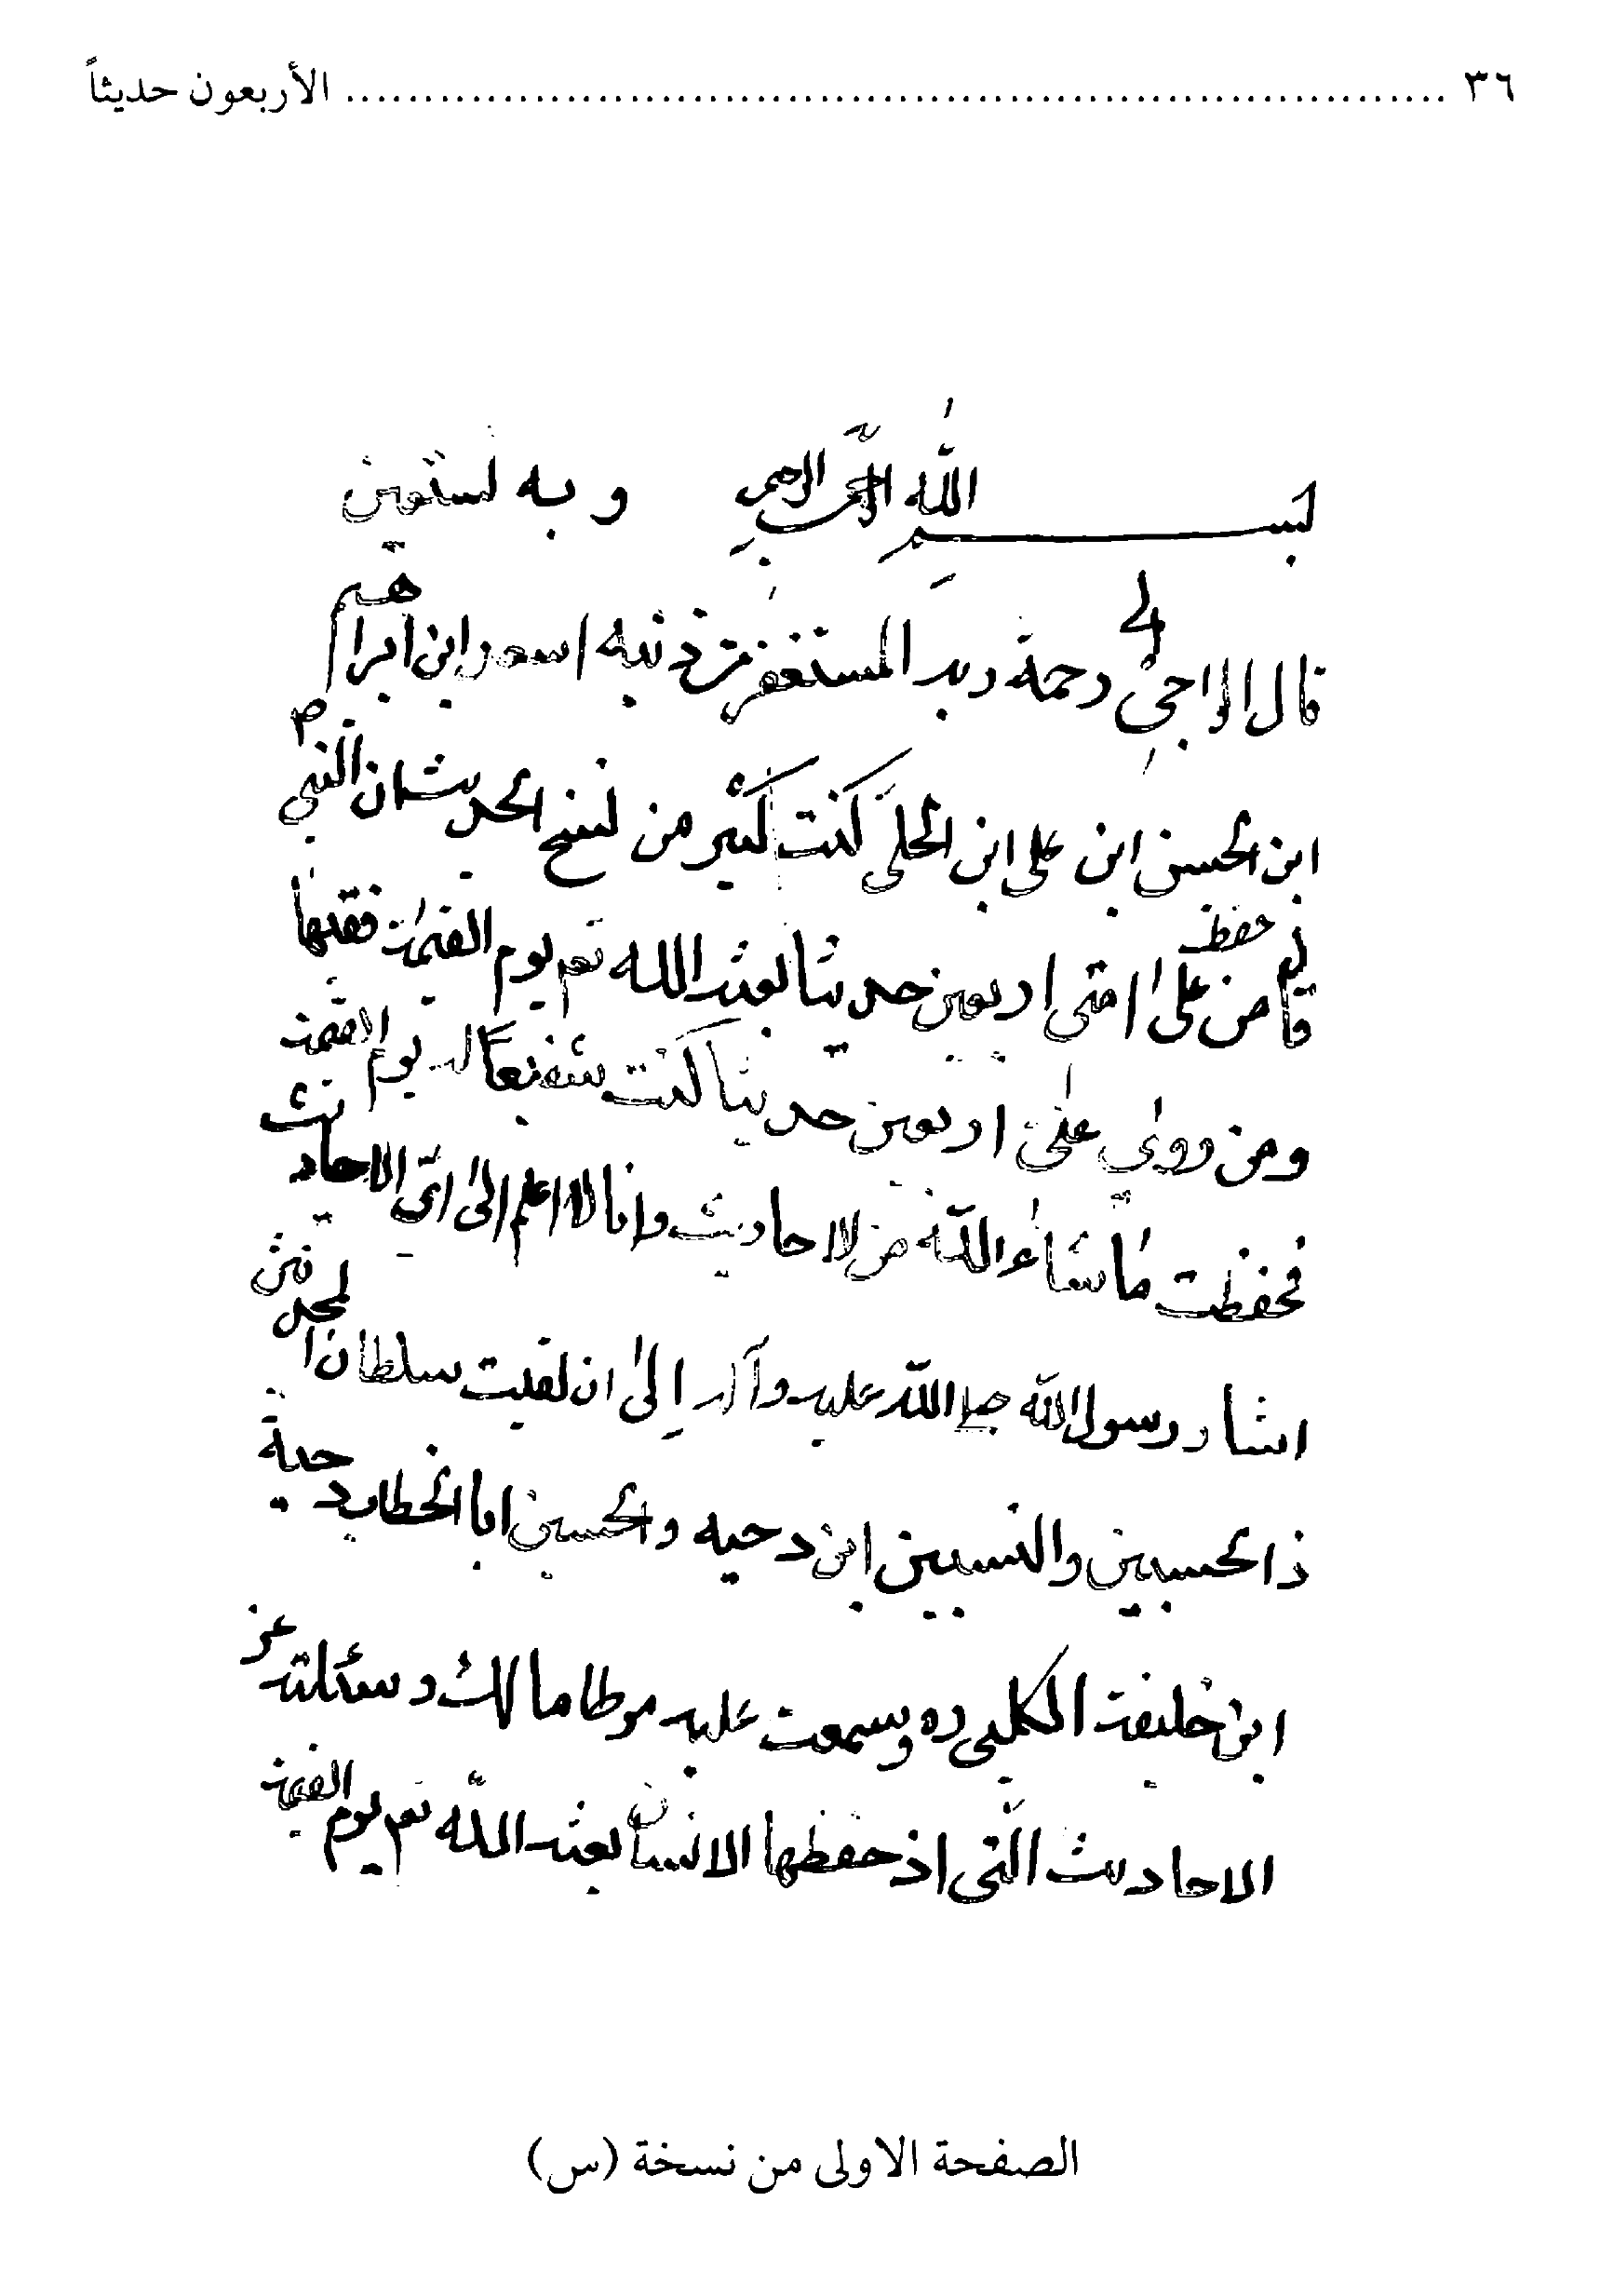 ٣٦ ........................................................................ الأربعون حديثاً
بسم الله الرحمن الرحيم وبه نستعين
قال الراجي الى رحمة ربه المستغفر من ذنبه اسعد ابن ابراهيم
ابن الحسن ابن على ابن الحلى كنت كثير من نسخ الحديث ان النبي ص
قال من حفظ على امتى اربعين حديثا بعثه الله تعم يوم القيمة فقيها
ومن روى على اربعين حديثا كنت شفيعاً له يوم القيمة
فحفظت ما شاء الله من لاحاديث وانا لا اعلم الى اى الاحاديث
اشار رسول الله صلى الله عليه وآله إلى ان لقيت سلطان المحدثين
ذا الحسبين والنسبين ابن دحيه والحسين ابا الخطاب دحية
ابن خليفة الكلبى ره وسمعت عليه موطا مالك وسئلته عن
الاحاديث التى اذ حفظها الانسان بعثه الله تعم يوم القيمة
الصفحة الاولى من نسخة (س)